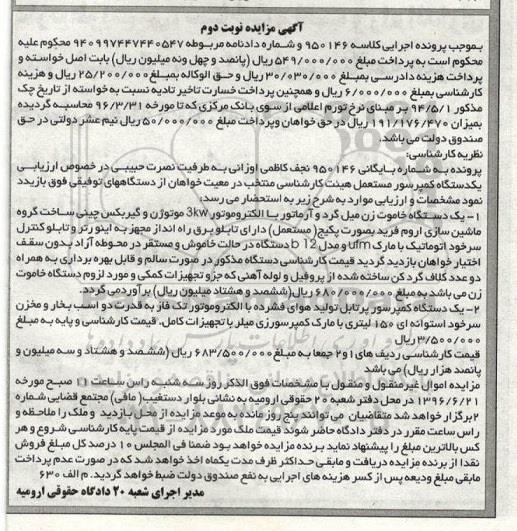 آگهی مزایده نوبت دوم
بموجب پرونده اجرایی کلاسه ۹۵۰۱۴۶ و شماره دادنامه مربوطه ۹۴۰۹۹۷۴۴۷۴۴۰۵۴۷ محکوم علیه
محکوم است به پرداخت مبلغ ۵۴۹/۰۰۰/۰۰۰ ریال (پانصد و چهل ونه میلیون ریال) بابت اصل خواسته و
پرداخت هزینه دادرسی بمبلغ ۳۰/۰۳۰/۰۰۰ ریال و حق الوکاله بمبلغ ۲۵/۲۰۰/۰۰۰ ریال و هزینه
کارشناسی بمبلغ ۶/۰۰۰/۰۰۰ ریال و همچنین پرداخت خسارت تاخیر تادیه نسبت به خواسته از تاریخ چک
مذکور ۹۴/۵/۱ بر مبنای نرخ تورم اعلامی از سوی بانک مرکزی که تا مورخه ۹۶/۳/۳۱ محاسبه گردیده
بمیزان ۱۹۱/۱۷۶/۴۷۰ ریال در حق خواهان وپرداخت مبلغ ۵۰/۰۰۰/۰۰۰ ریال نیم عشر دولتی در حق
صندوق دولت می باشد.
نظریه کارشناسی:
پرونده به شماره بایگانی ۹۵۰۱۴۶ نجف کاظمی اوزانی به طرفیت نصرت حبیبی در خصوص ارزیابی
یکدستگاه کمپرسور مستعمل هیئت کارشناسی منتخب در معیت خواهان از دستگاههای توقیفی فوق بازدید
نمود مشخصات و ارزیابی موارد به شرح زیر به استحضار می رسد:
۱- یک دستگاه خاموت زن میل گرد و آرماتور با الکتروموتور 3kw موتوژن و گیربکس چینی ساخت گروه
ماشین سازی اروم فرید بصورت پکیج (مستعمل) دارای تابلو برق راه انداز مجهز به اینورتر و تابلو کنترل
سرخود اتوماتیک با مارک ufm و مدل b 12 دستگاه در حالت خاموش و مستقر در محوطه آزاد بدون سقف
اختیار خواهان بازدید گردید قیمت کارشناسی دستگاه مذکور در صورت سالم و قابل بهره برداری به همراه
دو عدد کلاف گرد کن ساخته شده از پروفیل و لوله آهنی که جزو تجهیزات کمکی و مورد لزوم دستگاه خاموت
زن می باشد به مبلغ ۶۸۰/۰۰۰/۰۰۰ ریال (ششصد و هشتاد میلیون ریال) برآورد می گردد.
۲- یک دستگاه کمپرسور پرتابل تولید هوای فشرده با الکتروموتور تک فاز به قدرت دو اسب بخار و مخزن
سرخود استوانه ای ۱۵۰ لیتری با مارک کمپرسورزی میلر با تجهیزات کامل. قیمت کارشناسی و پایه به مبلغ
۳/۵۰۰/۰۰۰ ریال
قیمت کارشناسی ردیف های ۱و۲ جمعا به مبلغ ۶۸۳/۵۰۰/۰۰۰ ریال (ششصد و هشتاد و سه میلیون و
پانصد هزار ریال) می باشد
مزایده اموال غیرمنقول و منقول با مشخصات فوق الذکر روز سه شنبه راس ساعت ۱۱ صبح مورخه
۱۳۹۶/۶/۲۱ در محل دفتر شعبه ۲۰ حقوقی ارومیه به نشانی بلوار دستغیب (مافی) مجتمع قضایی شماره
۲ برگزار خواهد شد متقاضیان می توانند پنج روز مانده به موعد مزایده از محل بازدید و ملک را ملاحظه و
راس ساعت مقرر در دفتر دادگاه حاضر شوند قیمت ملک مورد مزایده از قیمت پایه کارشناسی شروع و هر
کس بالاترین مبلغ را پیشنهاد نماید برنده مزایده خواهد بود ضمنا فی المجلس ۱۰ درصد کل مبلغ فروش
نقدا از برنده مزایده دریافت و مابقی حداکثر ظرف مدت یکماه اخذ خواهد شد که در صورت عدم پرداخت
مابقی مبلغ ودیعه پس از کسر هزینه های اجرایی به نفع صندوق دولت ضبط خواهد گردید. م الف ۶۳۰
مدیر اجرای شعبه ۲۰ دادگاه حقوقی ارومیه